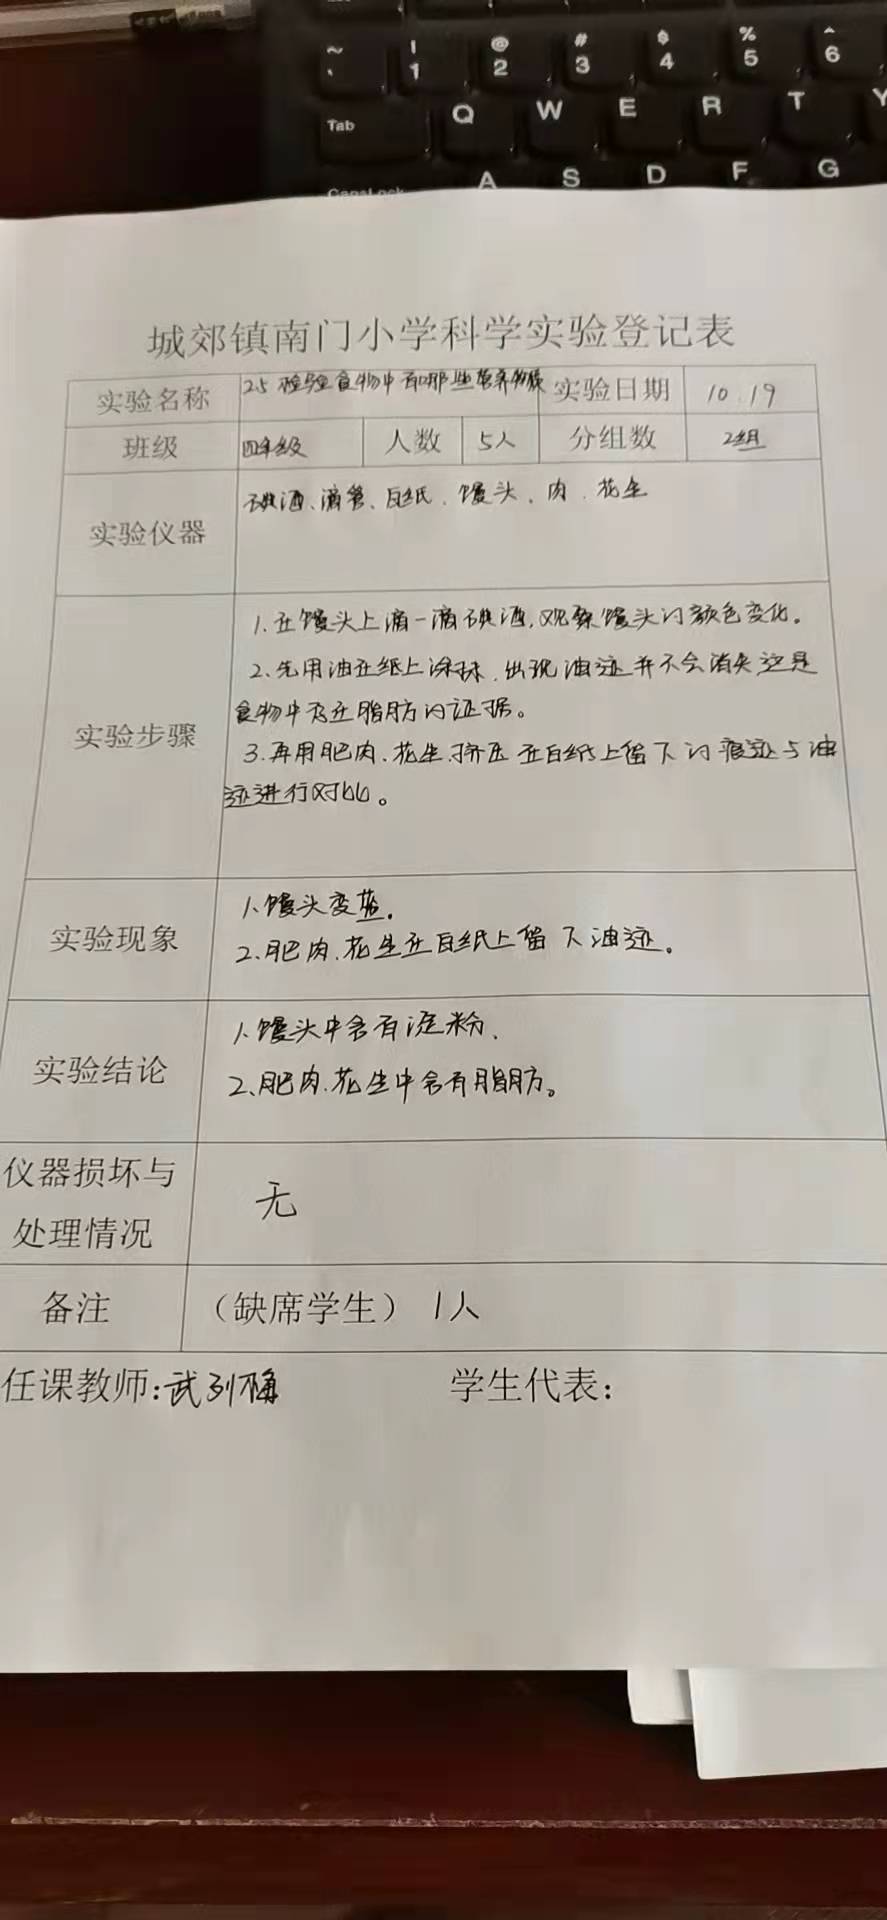 ~ ! @ # $ % ^
、 1 2 3 4 5 6
Tab Q W E R T Y
CapsLock A S D F G
城郊镇南门小学科学实验登记表
实验名称 25 检验食物中有哪些营养物质 实验日期 10.19
班级 四年级 人数 5人 分组数 2组
实验仪器 碘酒、滴管、白纸、馒头、肉、花生
实验步骤
1.在馒头上滴一滴碘酒,观察馒头的颜色变化。
2.先用油在纸上涂抹,出现油迹并不会消失,这是
食物中存在脂肪的证据。
3.再用肥肉、花生、挤压在白纸上留下的痕迹与油
迹进行对比。
实验现象
1、馒头变蓝。
2、肥肉、花生在白纸上留下油迹。
实验结论
1、馒头中含有淀粉、
2、肥肉、花生中含有脂肪。
仪器损坏与
处理情况 无
备注 (缺席学生) 1人
任课教师:武列梅 学生代表: